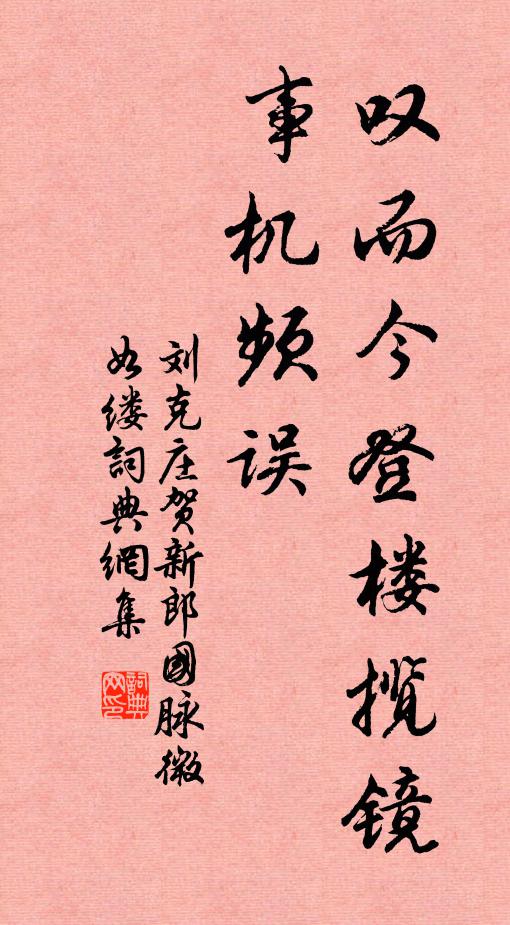 叹而今登楼揽镜
事机频误
刘克庄贺新郎國脉微
如缕詞典網集
詞典
网印